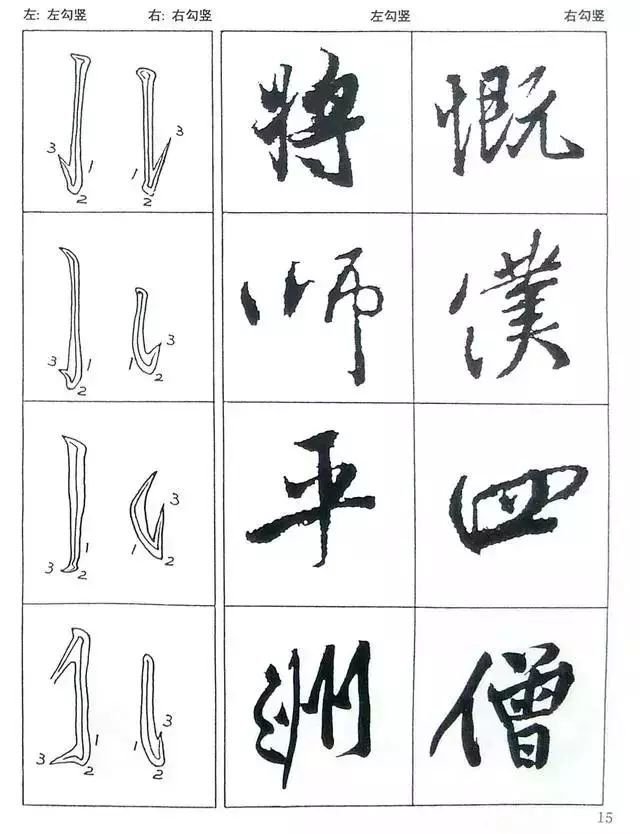 左: 左勾竖 右: 右勾竖 左勾竖 右勾竖
3 1 2 1 3 2 将 慨
3 1 2 1 3 2 师
3 2 1 1 3 2 平 四
3 2 1 1 3 2 洲 僧
15